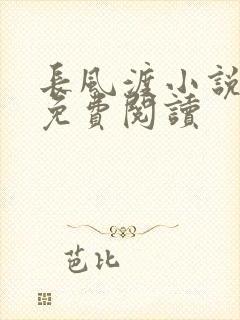 長風渡小說
免費閱讀
芭比